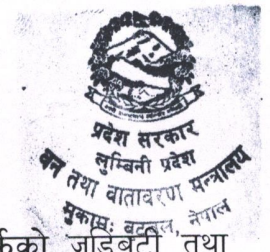 प्रदेश सरकार
लुम्बिनी प्रदेश
वन तथा वातावरण मन्त्रालय
मुकाम: बुटवल, नेपाल
जडिबुटी तथा